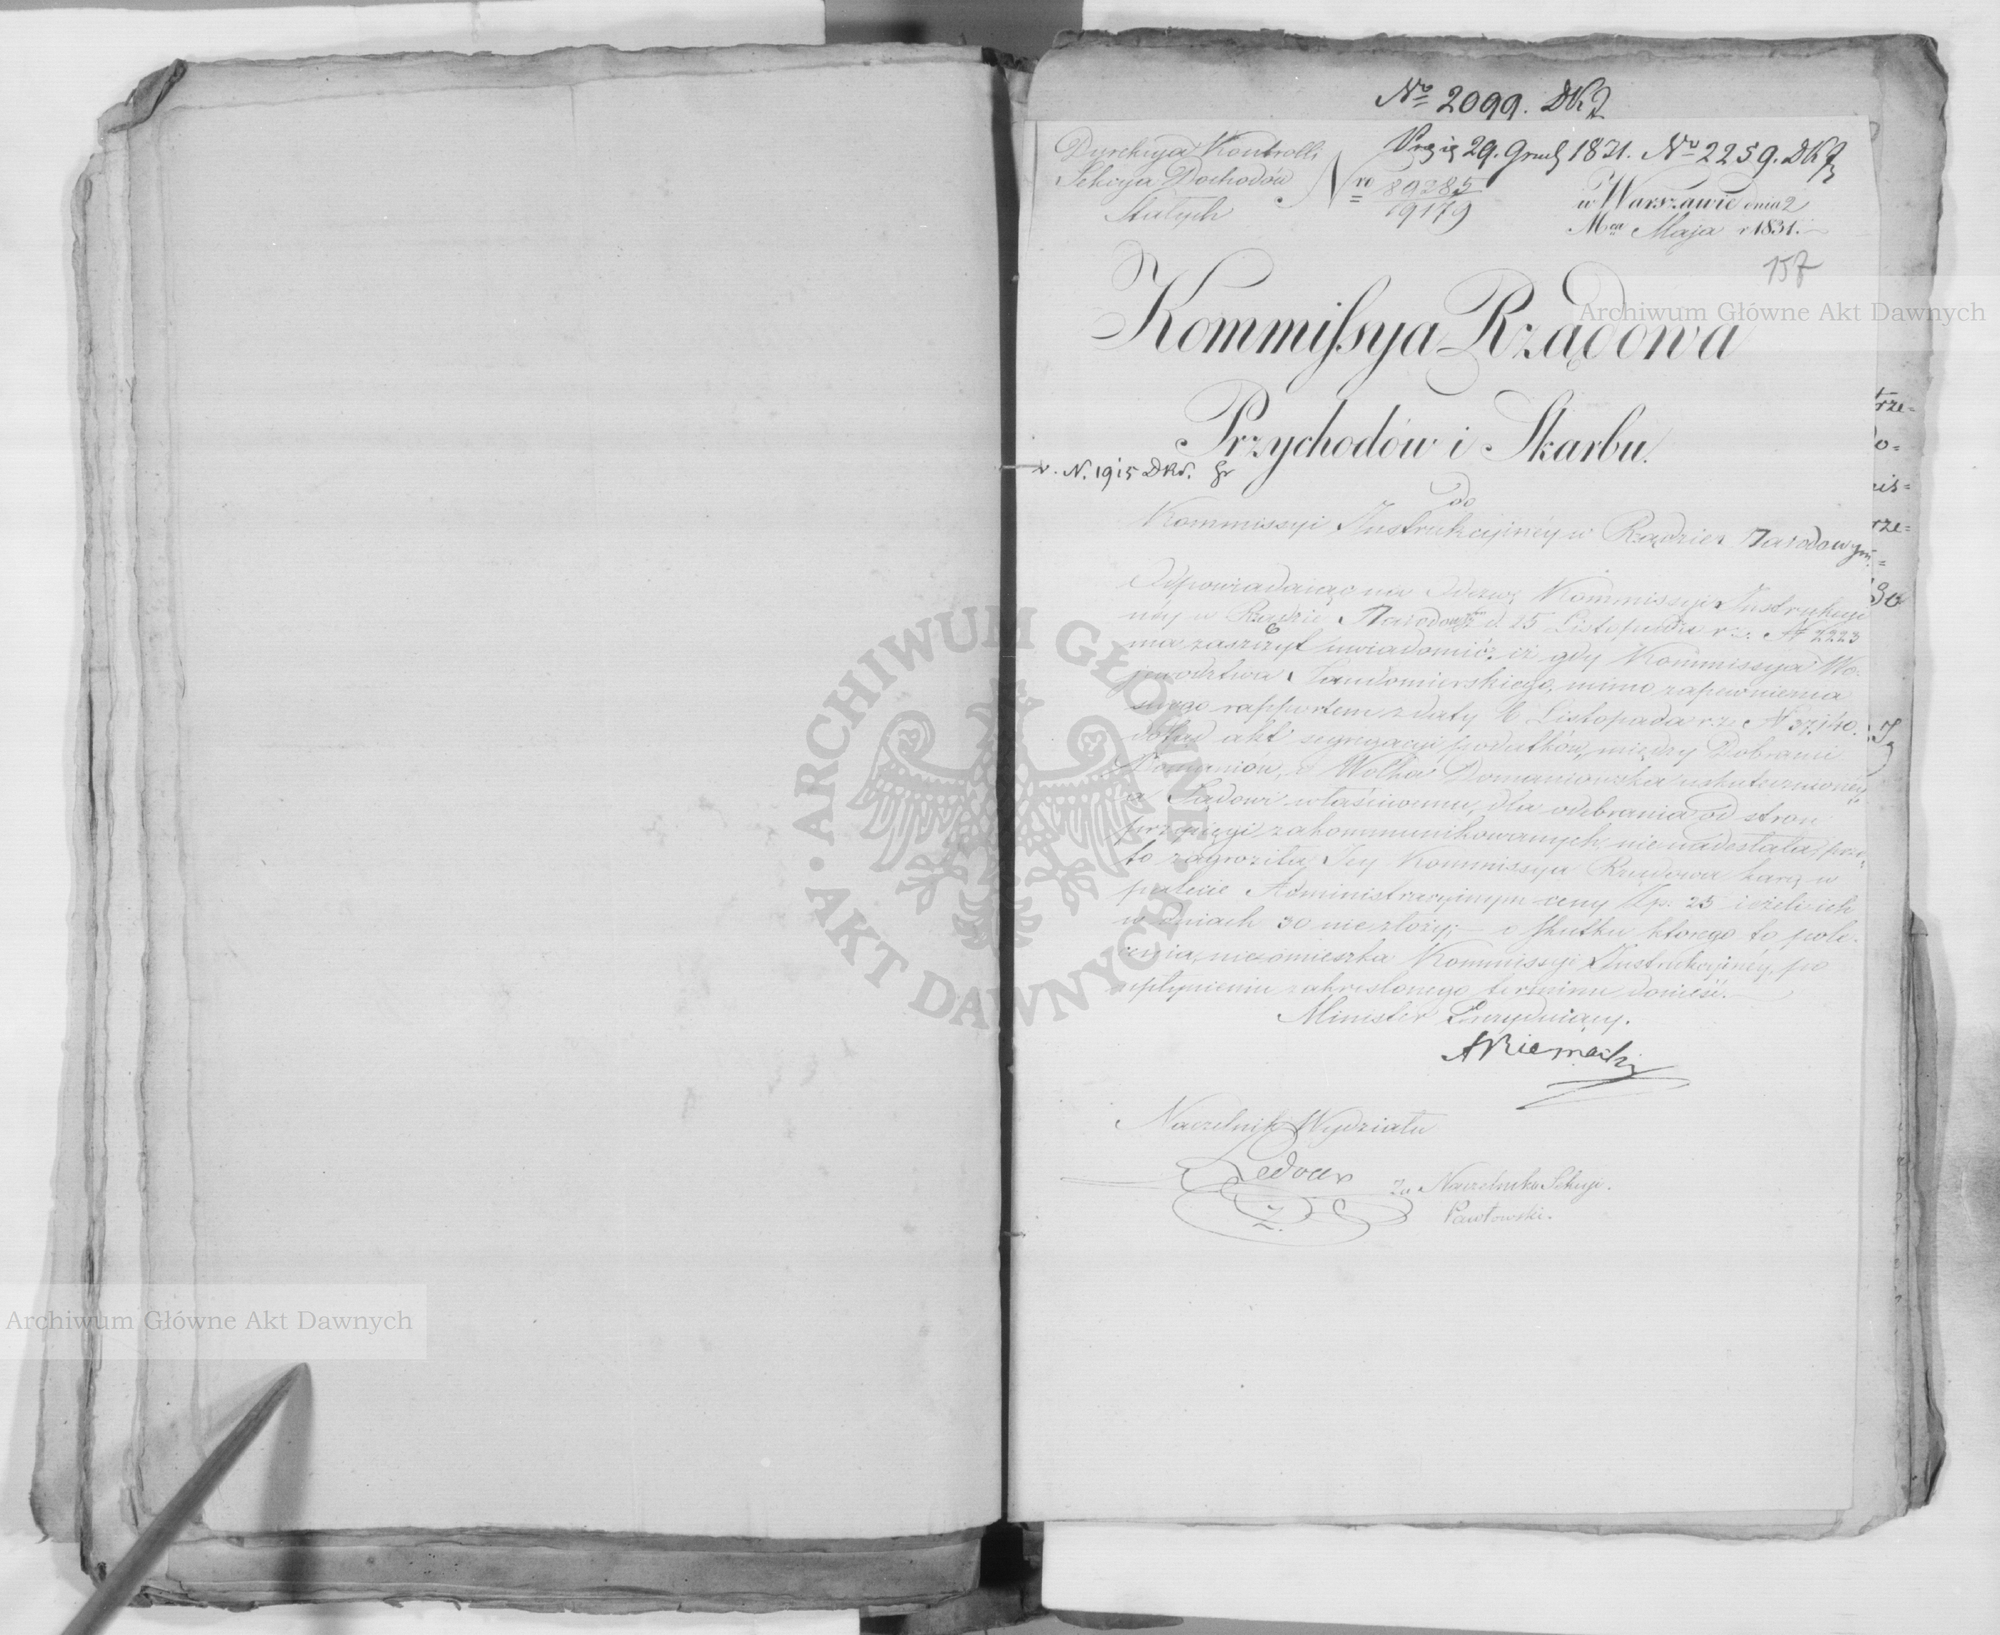 No 2099. DKJ
Dyrekcya Kontrolli
Sekcya Dochodów
Stałych
Nro 89285
19179
29. Grud 1831. No 2259. DKJ
w Warszawie dnia 2
Mca Maja r 1831.
157
Archiwum Główne Akt Dawnych
Kommissya Rządowa
Przychodów i Skarbu.
v. N. 1915 DKJ.
do
Kommissyi Instrukcyinéy w Rządzie Narodowym
Odpowiadaiąc na Odezwę Kommissyi Instrukcyi
néy w Rządzie Narodowym d. 15 Listopada r.z. No 2223
ma zaszczyt uwiadomić, iż gdy Kommissya Wo-
jewództwa Sandomierskiego, mimo zapewnienia
swego rapportem z daty 6 Listopada r.z. N 37,140.
dotąd akt segregacyi podatków, między Dobrami
Domaniow, a Wolka Domaniowska uskutecznionéy
a Sądowi właściwemu, dla odebrania od stron
przysięgi zakommunikowanych, nie nadesłała, prze-
to zagroziła Jey Kommissya Rządowa karą w
Administracyinym ceny Zp. 25 ieżeli ich
w dniach 30 nie złoży; – o skutku którego to pole-
cenia, nieomieszka Kommissyi Instrukcyinéy, po
upłynieniu zakreślonego terminu donieść.
Minister Prezyduiący.
Naczelnik Wydziału
Ledoux
Za Naczelnika Sekcyi.
Pawłowski.
trze=
do=
nis=
rze=
30
ARCHIWUM GŁÓWNE · AKT DAWNYCH ·
Archiwum Główne Akt Dawnych